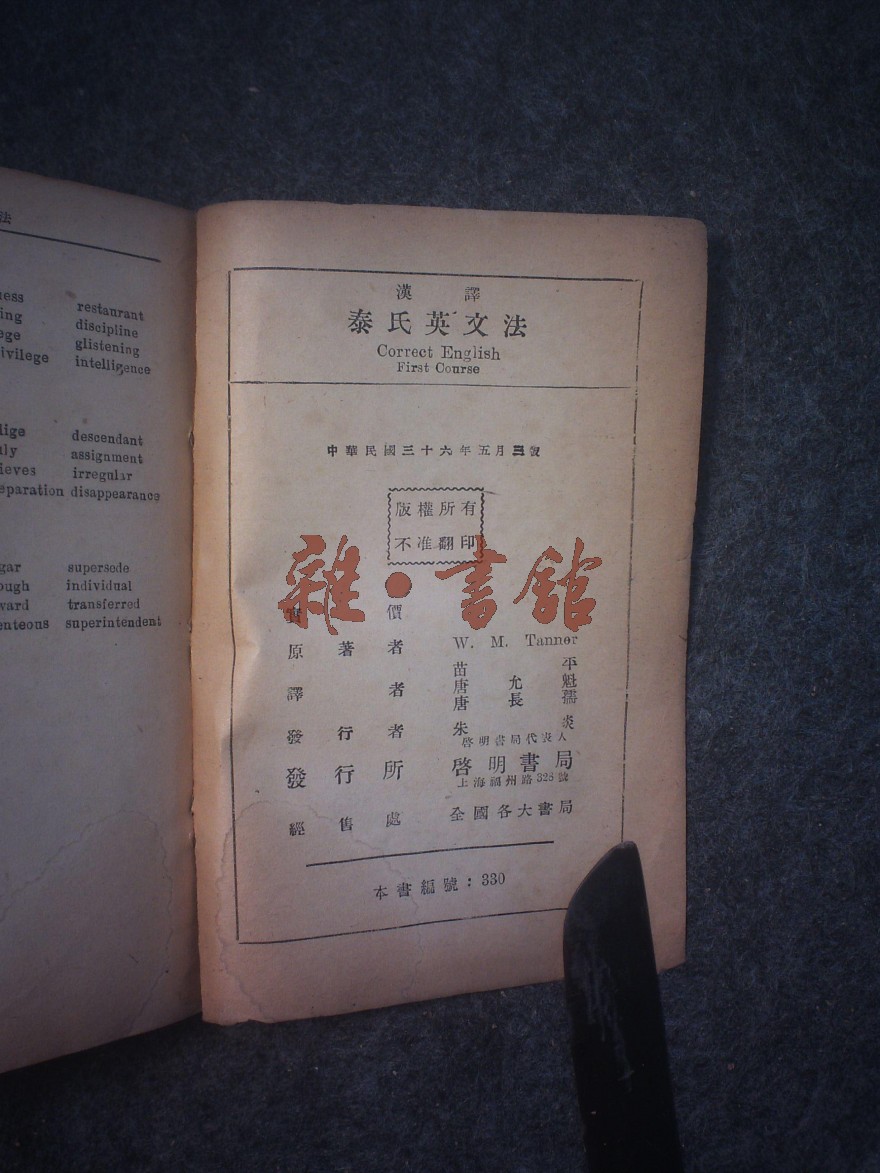 法
restaurant
discipline
glistening
ivilege intelligence
descendant
assignment
ieves irregular
eparation disappearance
gar supersede
ough individual
ward transferred
enteous superintendent
漢譯
泰氏英文法
Correct English
First Course
中華民國三十六年五月三版
版權所有
不准翻印
雜·書館
實價
原著者 W. M. Tanner
譯者 苗平
唐允魁
唐長孺
發行者 朱炎
啓明書局代表人
發行所 啓明書局
上海福州路328號
經售處 全國各大書局
本書編號：330